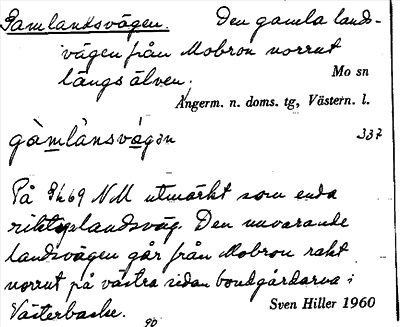 Gamlandsvägen. Den gamla lands-
vägen från Mobron norrut
längs älven. Mo sn
Ångerm. n. doms. tg, Västern. l.
gàmlånsvágən 337
På Gk 69 NM utmärkt som enda
riktiga landsväg. Den nuvarande
landsvägen går från Mobron rakt
norrut på västra sidan bondgårdarna i
Västerbacke. Sven Hiller 1960
90